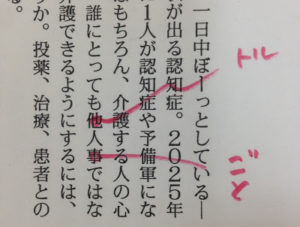 一日中ぼーっとしている―
が出る認知症。2025年
1人が認知症や予備軍にな
はもちろん、介護する人の心
誰にとっても他人事ではな
介護できるようにするには、
か。投薬、治療、患者との
る。
トル
ごと